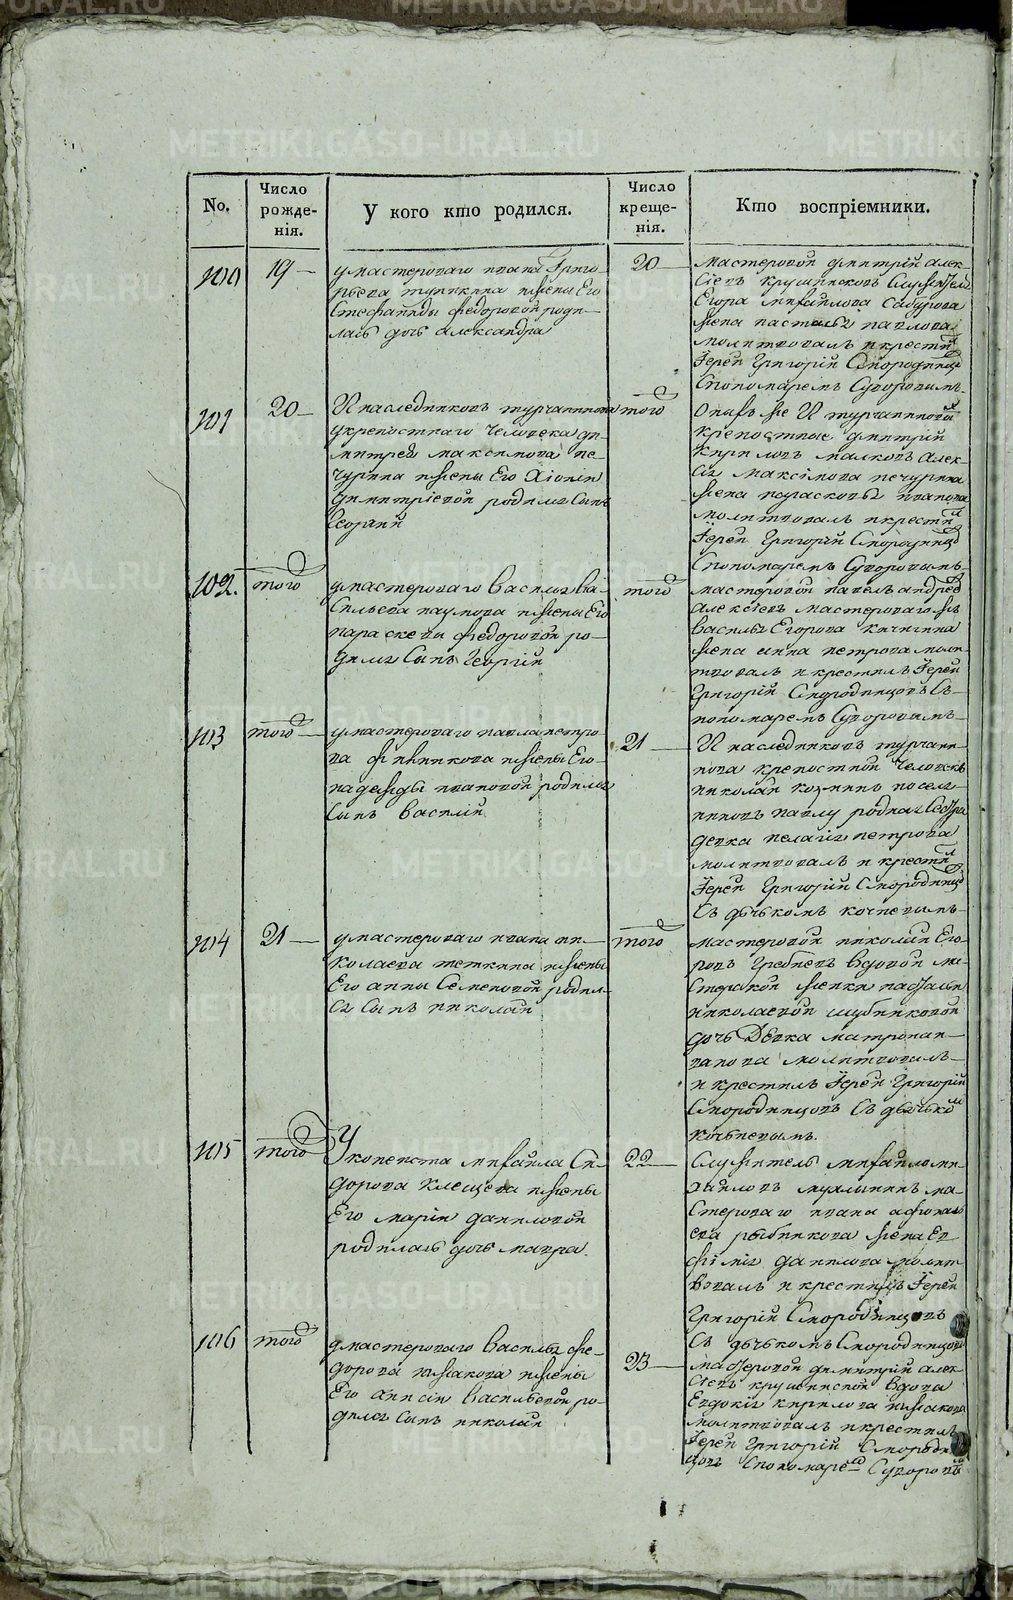 No.
Число рожде-
нія.
У кого кто родился.
Число креще-
нія.
Кто воспріемники.
100
19
умастероваго ивана Григо-
рьева тупикина ижены Его
Стефаниды федоровой роди-
лась дочь александра
20
мастеровой дмитрій алек-
сіевъ крушинсковъ Служител
Егора михайлова Сабурова
жена настасья павлова
молитвовалъ икрестил
Іерей Григорій Смородинцо
Спономаремъ Суворовымъ
101
20
И наследниковъ турчанинова
укрепостнаго человека ди-
митрея максимова пе-
чурина ижены Его Хіоніи
димитріевой родился Сынъ
Георгий
того
Онаго же И турчанинова
крепостные дмитрій
Кириловъ малковъ алек-
сія максімова печурина
жена парасковья иванова
молитвовалъ икрестил
Іерей Григорій Смородинцо
Спономаремъ Суворовымъ
102.
того
умастероваго Василья ва-
сильева наумова ижены Его
параскевы федоровой ро-
дился Сынъ Георгій
того
мастеровой павелъ андрее
алексіевъ мастероваго жъ
Василья Егорова кичигина
жена анна петрова моли-
твовалъ икрестилъ Іерей
Григорій Смородинцовъ Съ
пономаремъ Суворовымъ
103
того
умастероваго павла петро-
ва ижены Его
надежды ивановой родился
Сынъ василій
21
И наследниковъ турчани-
нова крепостной человекъ
николай поселя-
никовъ павлу родная Сестра
девка пелагія петрова
молитвовалъ и крестил
Іерей Григорій Смородинцо
Съ дьячкомъ кочневымъ
104
21
умастероваго ивана ни-
колаева теткина ижены
Его анны Семеновой родил-
ся Сынъ николай
того
мастеровой николай Его-
ровъ Гребневъ вдовой ма-
стерской женки натальи
николаевой шубниковой
дочь Девка матрона и-
ванова молитвовалъ
и крестилъ Іерей Григорій
Смородинцовъ Съ дьячком
кочневымъ.
105
того
У
копеиста михайла Си-
дорова клещева ижены
Его маріи даниловой
родилась дочь мавра.
22
Служитель михайло ми-
хайловъ ма-
стероваго ивана афонась
ева рыбникова жена Ев
фімія данилова молит
вовалъ и крестилъ Іерей
Григорій Смородінцовъ
Съ дьячкомъ Смородинцовы
106
того
умастероваго василья фе-
дорова пижакова ижены
Его анисіи васильевой ро-
дился Сынъ николай
23
мастеровой димитрій алек-
сіевъ крушинской вдова
Евдокія кирилова пижакова
молитвовалъ икрестилъ
Іерей Григорій Смородин
цовъ Спономарем Суворовы
METRIKI.GASO-URAL.RU